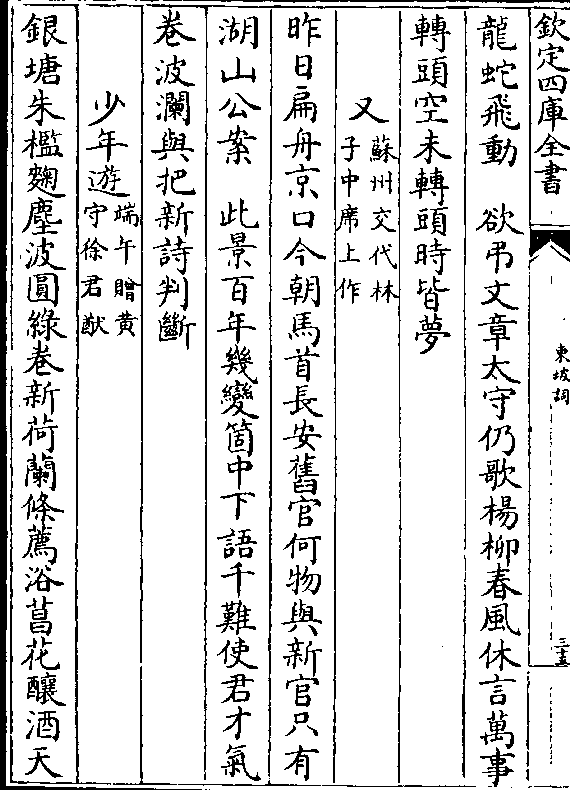 欽定四庫全書
東坡詞
三十五
龍蛇飛動　欲弔文章太守仍歌楊柳春風休言萬事
轉頭空未轉頭時皆夢
又蘇州交代林
子中席上作
昨日扁舟京口今朝馬首長安舊官何物與新官只有
湖山公案　此景百年幾變箇中下語千難使君才氣
卷波瀾與把新詩判斷
少年遊端午贈黄
守徐君猷
銀塘朱檻麴塵波圓綠卷新荷蘭條薦浴菖花釀酒天